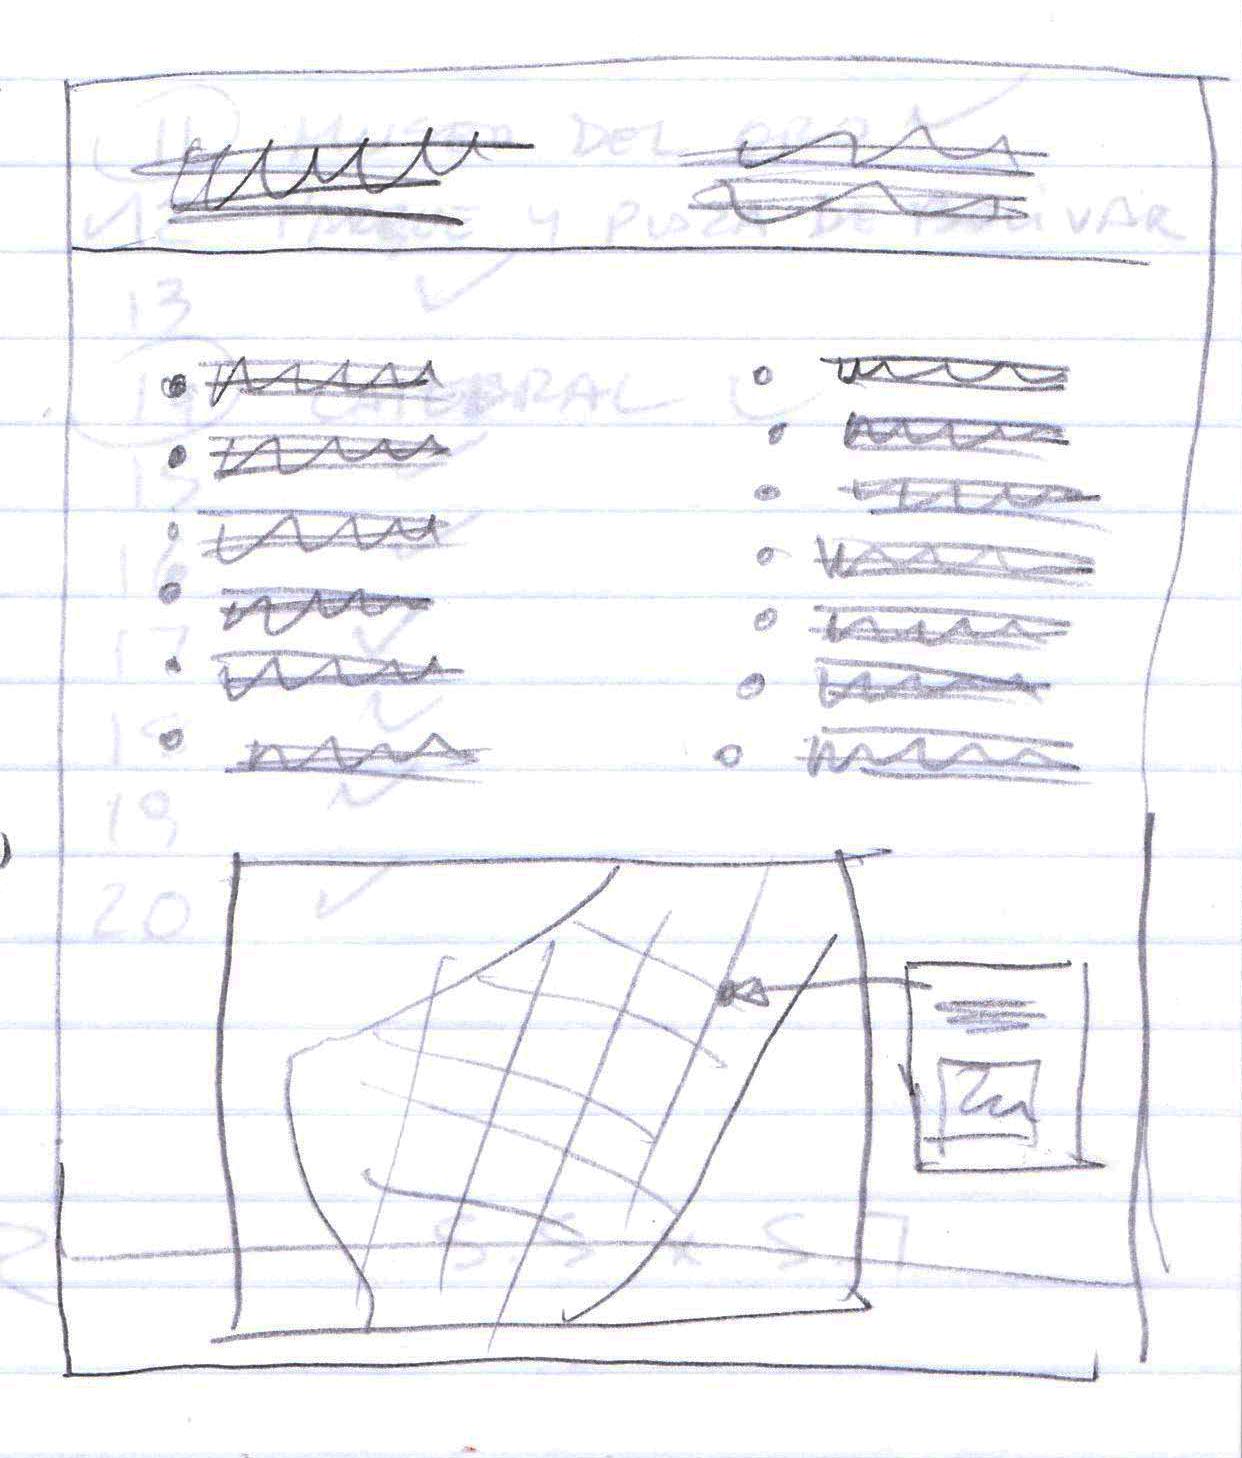 11 MUSEO DEL ORO
12 Y PLAZA DE BOLIVAR
13
14 CATEDRAL
15
16
17
18
19
20
5.5 * 5.7